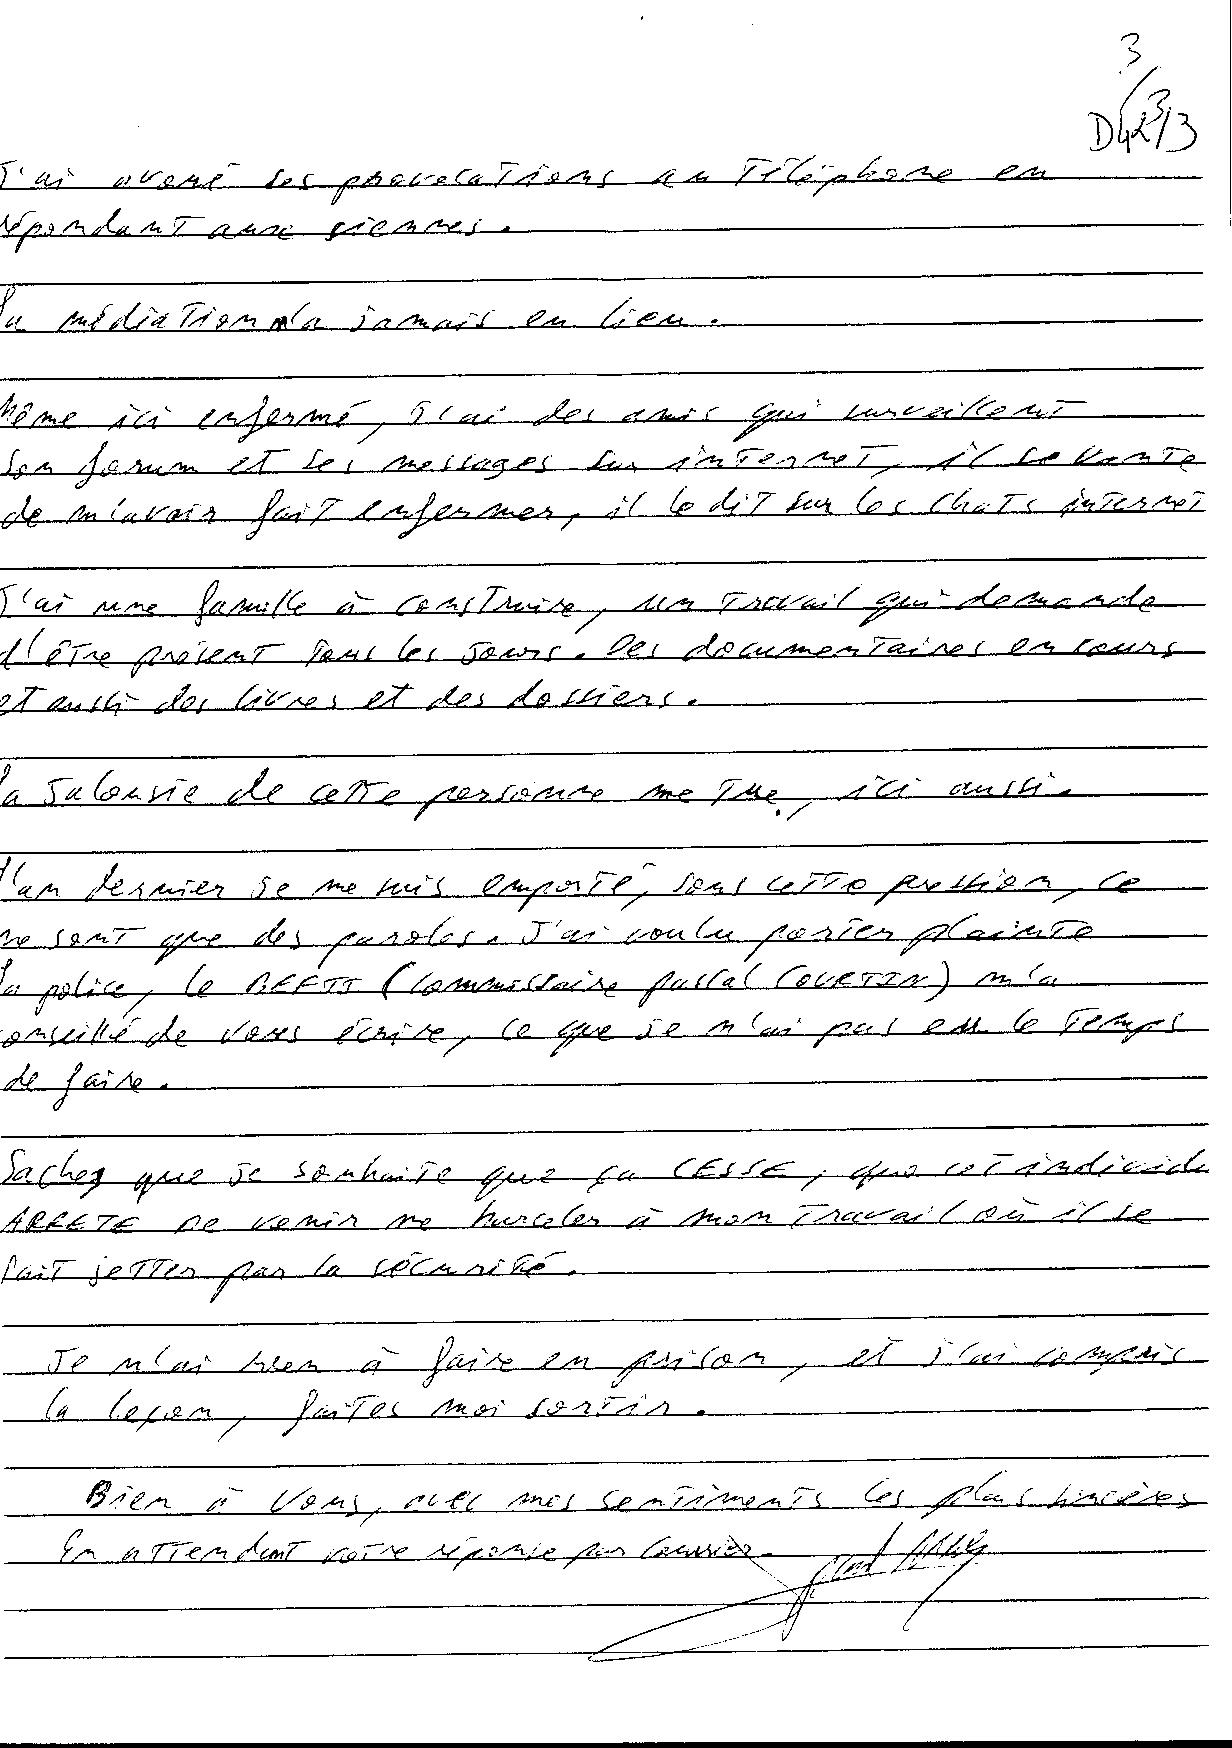 3
D42 3/3
J'ai avoué ses provocations au Téléphone en
répondant aux siennes.
La médiation n'a jamais eu lieu.
Même ici enfermé, j'ai des amis qui surveillent
son forum et ses messages sur internet, il se vante
de m'avoir fait enfermer, il le dit sur les chats internet
J'ai une famille à construire, un travail qui demande
d'être présent tous les jours. Des documentaires en cours
et aussi des livres et des dossiers.
La jalousie de cette personne me tue, ici aussi.
L'an dernier je me suis emporté, sous cette pression, ce
ne sont que des paroles. J'ai voulu porter plainte
la police, le BEFTI (commissaire pascal COURTIN) m'a
conseillé de vous écrire, ce que je n'ai pas eu le temps
de faire.
Sachez que je souhaite que ça CESSE, que cet individu
ARRETE de venir me harceler à mon travail où il se
fait jetter par la sécurité.
Je n'ai rien à faire en prison, et j'ai compris
la leçon, faites moi sortir.
Bien à vous, avec mes sentiments les plus sincères
En attendant votre réponse par courrier.